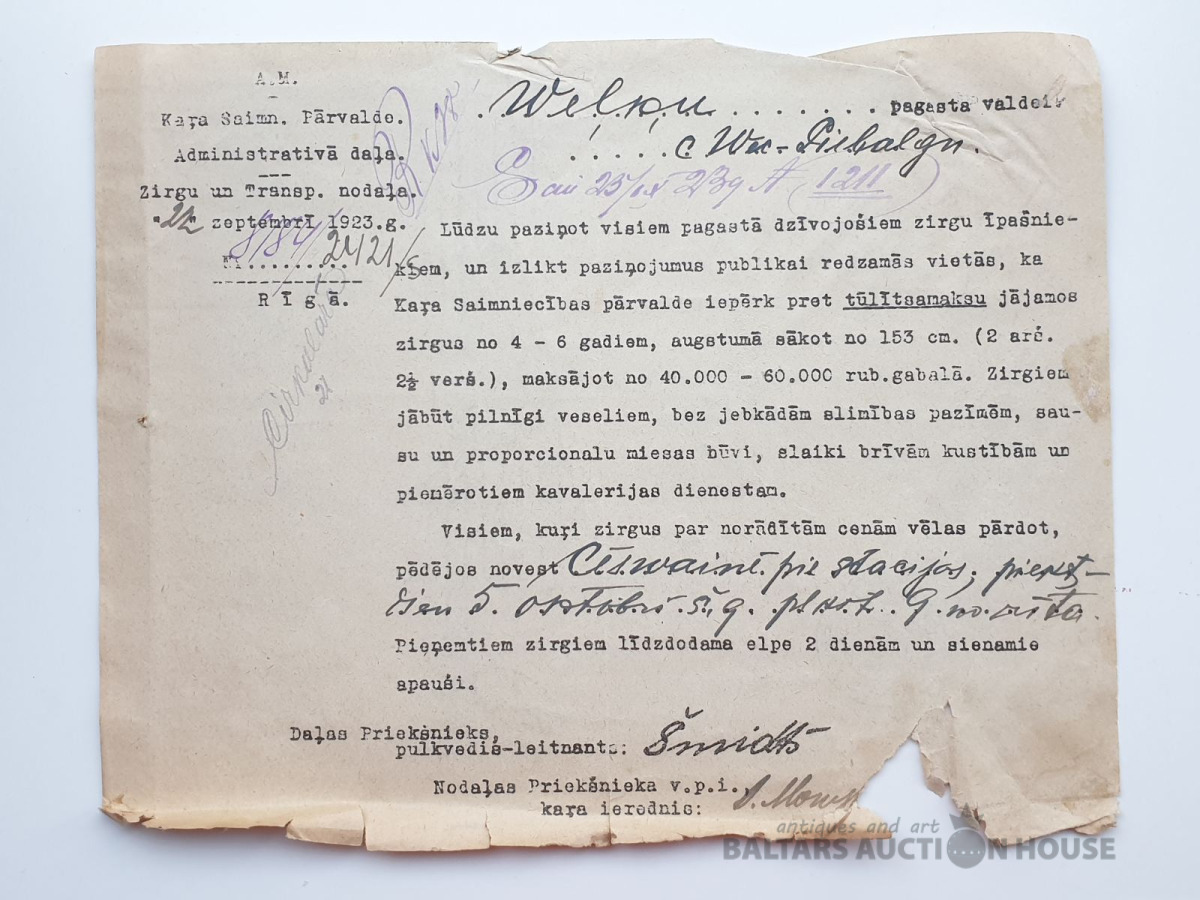 A.M.
Kaŗa Saimn. Pārvalde.
Administratīvā daļa.
Zirgu un Transp. nodaļa.
22 zeptembrī 1923.g.
8184/
№ ........ 24121/s
Rīgā.
Welķu ....... pagasta valdei
c. Wec-Piebalgu.
San 25/IX 23g № 1211
Lūdzu paziņot visiem pagastā dzīvojošiem zirgu īpašnie-
kiem, un izlikt paziņojumus publikai redzamās vietās, ka
Kaŗa Saimniecības pārvalde iepērk pret tūlītsamaksu jājamos
zirgus no 4 - 6 gadiem, augstumā sākot no 153 cm. (2 arš.
2½ verš.), maksājot no 40.000 - 60.000 rub.gabalā. Zirgiem
jābūt pilnīgi veseliem, bez jebkādām slimības pazīmēm, sau-
su un proporcionalu miesas būvi, slaiki brīvām kustībām un
piemērotiem kavalerijas dienestam.
Visiem, kuŗi zirgus par norādītām cenām vēlas pārdot,
pēdējos novest Cēswainē pie stacijas, piekt-
dien 5. oktobrī š.g. plkst. 9 no rīta.
Pieņemtiem zirgiem līdzdodama elpe 2 dienām un sienamie
apauši.
Daļas Priekšnieks,
pulkvedis-leitnants: Šmidts
Nodaļas Priekšnieka v.p.i.,
kaŗa ierednis:
antiques and art
BALTARS AUCTION HOUSE